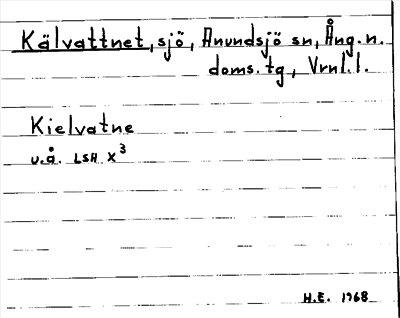 Kälvattnet, sjö, Anundsjö sn, Ång.n.
doms.tg, Vrnl.l.
Kielvatne
u.å. LSH X³
H.E. 1968